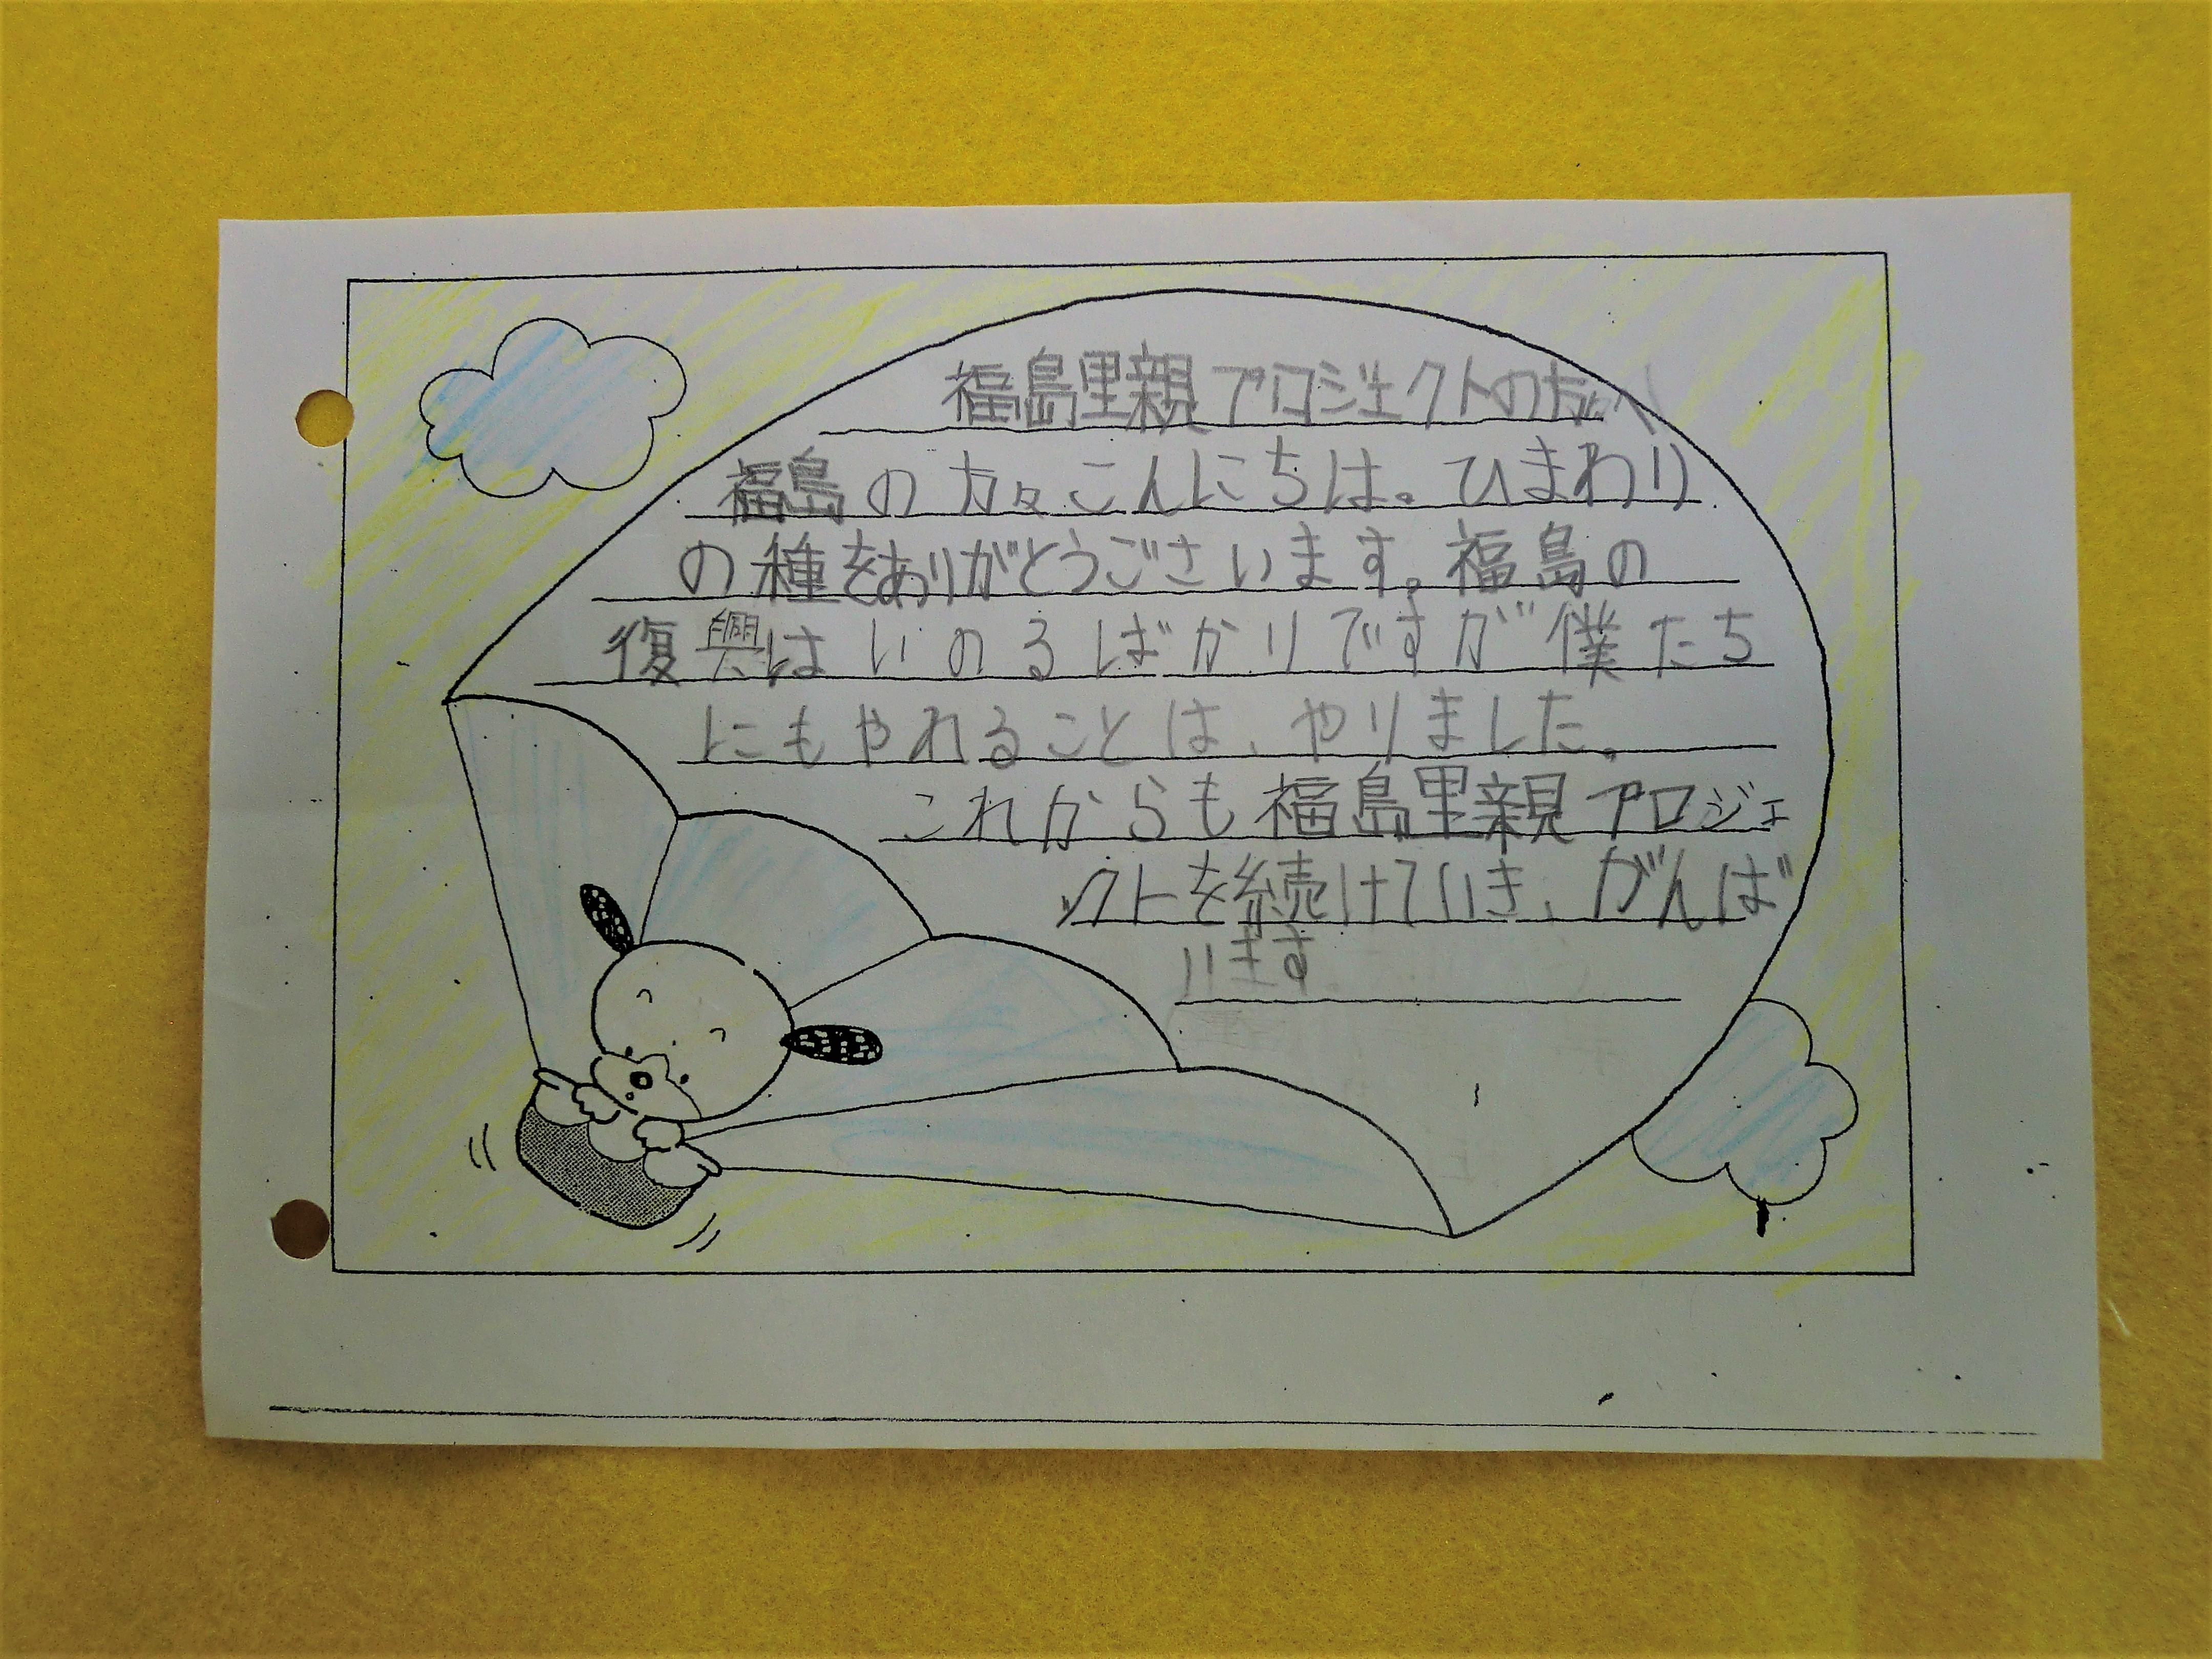 福島里親プロジェクトの方々へ
福島の方々こんにちは。ひまわり
の種をありがとうございます。福島の
復興はいのるばかりですが僕たち
にもやれることは、やりました。
これからも福島里親プロジェ
クトを続けていき、がんば
います。